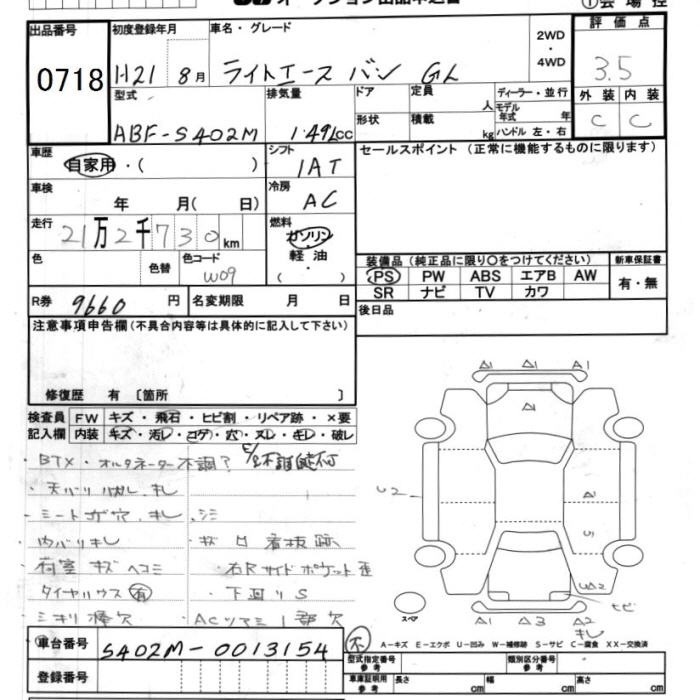 出品番号
0718
初度登録年月
H21 8月
車名・グレード
ライトエース バン GL
2WD
・
4WD
評価点
3.5
外装 内装
C C
型式
ABF-S402M
排気量
1.49L CC
ドア
形状
定員
人
積載
kg
ディーラー・並行
モデル
年式 年
ハンドル 左・右
車歴
自家用・( )
シフト
IAT
セールスポイント (正常に機能するものに限ります)
車検
年 月( 日)
冷房
AC
走行
21万2千730km
燃料
ガソリン
軽油
・
( )
色
色替
色コード
W09
装備品 (純正品に限り〇をつけてください)
新車保証書
PS PW ABS エアB AW
SR ナビ TV カワ
有・無
R券 9660円
名変期限 月 日
後日品
注意事項申告欄 (不具合内容等は具体的に記入して下さい)
修復歴 有 〔箇所 〕
検査員 FW キズ・飛石・ヒビ割・リペア跡・×要
記入欄 内装 キズ・汚レ・コゲ・穴・スレ・キレ・破レ
・BTX・オルタネーター不調?
・シートコゲ穴、キレ、シミ
・内バリキレ
・荷室 キズ ヘコミ
・右Rサイドポケット
・タイヤハウス 有
・下回リS
A1
U2
UA2
ヒビ
スペア
A2
キレ
車台番号
S402M-0013154
不
A-キズ E-エクボ U-凹み W-補修跡 S-サビ C-腐食 XX-交換済
登録番号
型式指定番号
参考
類別区分番号
参考
車庫証明用
参考
長さ cm
幅 cm
高さ cm